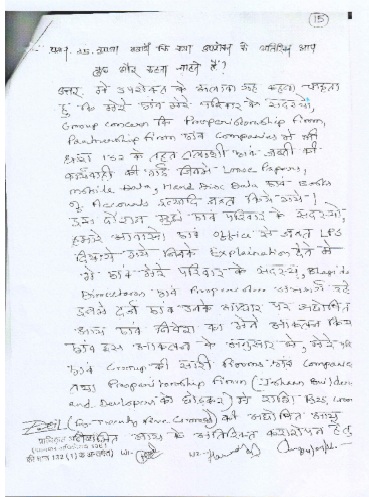 15
प्रश्न.25. कृपया बतायें कि क्या उपरोक्त के अतिरिक्त आप
कुछ और कहना चाहते हैं?
उत्तर. मैं उपरोक्त के अलावा यह कहना चाहता
हूं कि मेरे एवं मेरे परिवार के सदस्यों,
Group concern कि Proprietorship Firm,
Partnership Firm एवं Companies में की
धारा 132 के तहत तलाशी एवं जब्ती की
कार्यवाही की गई जिसमें Loose Papers,
mobile Data, Hard Disc Data एवं Books
of Accounts इत्यादि जब्त किये गये।
इस दौरान मुझे एवं परिवार के सदस्यों,
हमारे आवासों एवं office से जब्त LPS
दिखाये गये जिनके Explaination देने में
मैं एवं मेरे परिवार के सदस्य,
Directors एवं Proprietors रहे
इनमें दर्ज एवं उनके आधार पर अघोषित
आय एवं निवेश का मैंने आकलन किया
एवं इस आकलन के अनुसार मैं, मेरे
एवं Group की सारी Firms एवं Companies
तथा Proprietorship Firm (Builders
and Developers को छोड़कर) में राशि Rs.
(Rs. Twenty Five Crores) की अघोषित आय
आय के अतिरिक्त कराधान हेतु